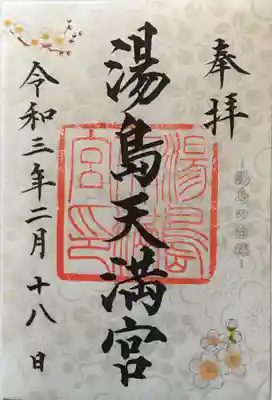 奉拝
湯島天満宮
令和三年二月十八日